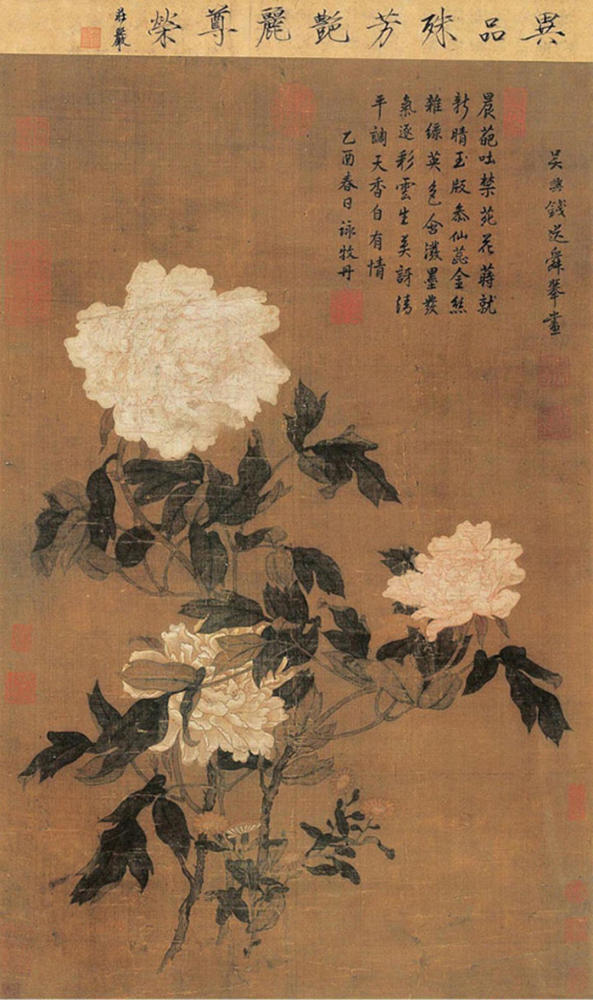 異品殊芳艷麗尊榮
莊嚴
吳興錢選舜舉畫
晨葩吐禁苑花蒔就
新晴玉版參仙蕊金絲
雜綠英色含潑墨發
氣逐彩雲生莫訝清
平調天香自有情
乙酉春日詠牡丹